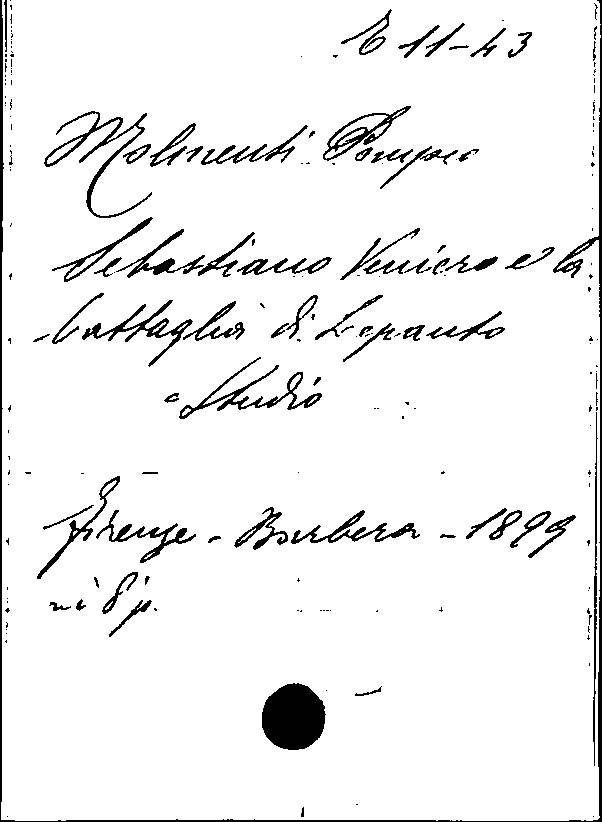 E 11-43
Molmenti Pompeo
Sebastiano Veniero e la
battaglia di Lepanto
Studio
Firenze - Barbera - 1899
in 8 p.